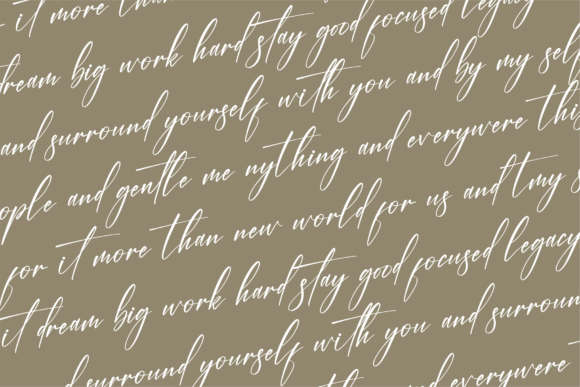 it more than
dream big work hard stay good focused legacy
and surround yourself with you and by my self
ople and gentle me nything and everywere this
for it more than new world for us and tmy s
it dream big work hard stay good focused legacy
d surround yourself with you and surroun
and gentle me nything and everywere